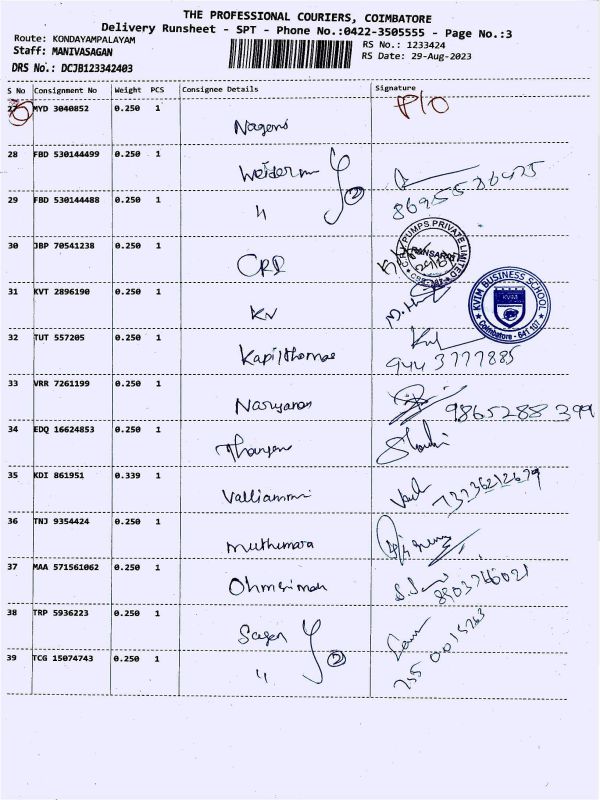 THE PROFESSIONAL COURIERS, COIMBATORE
Delivery Runsheet - SPT - Phone No.:0422-3505555 - Page No.:3
Route: KONDAYAMPALAYAM
RS No.: 1233424
Staff: MANIVASAGAN
RS Date: 29-Aug-2023
DRS No.: DCJB123342403
S No Consignment No Weight PCS Consignee Details Signature
27 MYD 3040852 0.250 1 P/O
28 FBD 530144499 0.250 1 2
29 FBD 530144488 0.250 1 "
30 JBP 70541238 0.250 1 CRI
PUMPS PRIVATE LIMITED
31 KVT 2896190 0.250 1 KV
KVIM BUSINESS SCHOOL
KVIM
Coimbatore - 641 107
32 TUT 557205 0.250 1 Kapilthomas
944 3777885
33 VRR 7261199 0.250 1 Narayanan 9865288 399
34 EDQ 16624853 0.250 1
35 KDI 861951 0.339 1 Valliammi
36 TNJ 9354424 0.250 1 Muthumara
37 MAA 571561062 0.250 1
38 TRP 5936223 0.250 1 Sagen 2
39 TCG 15074743 0.250 1 "